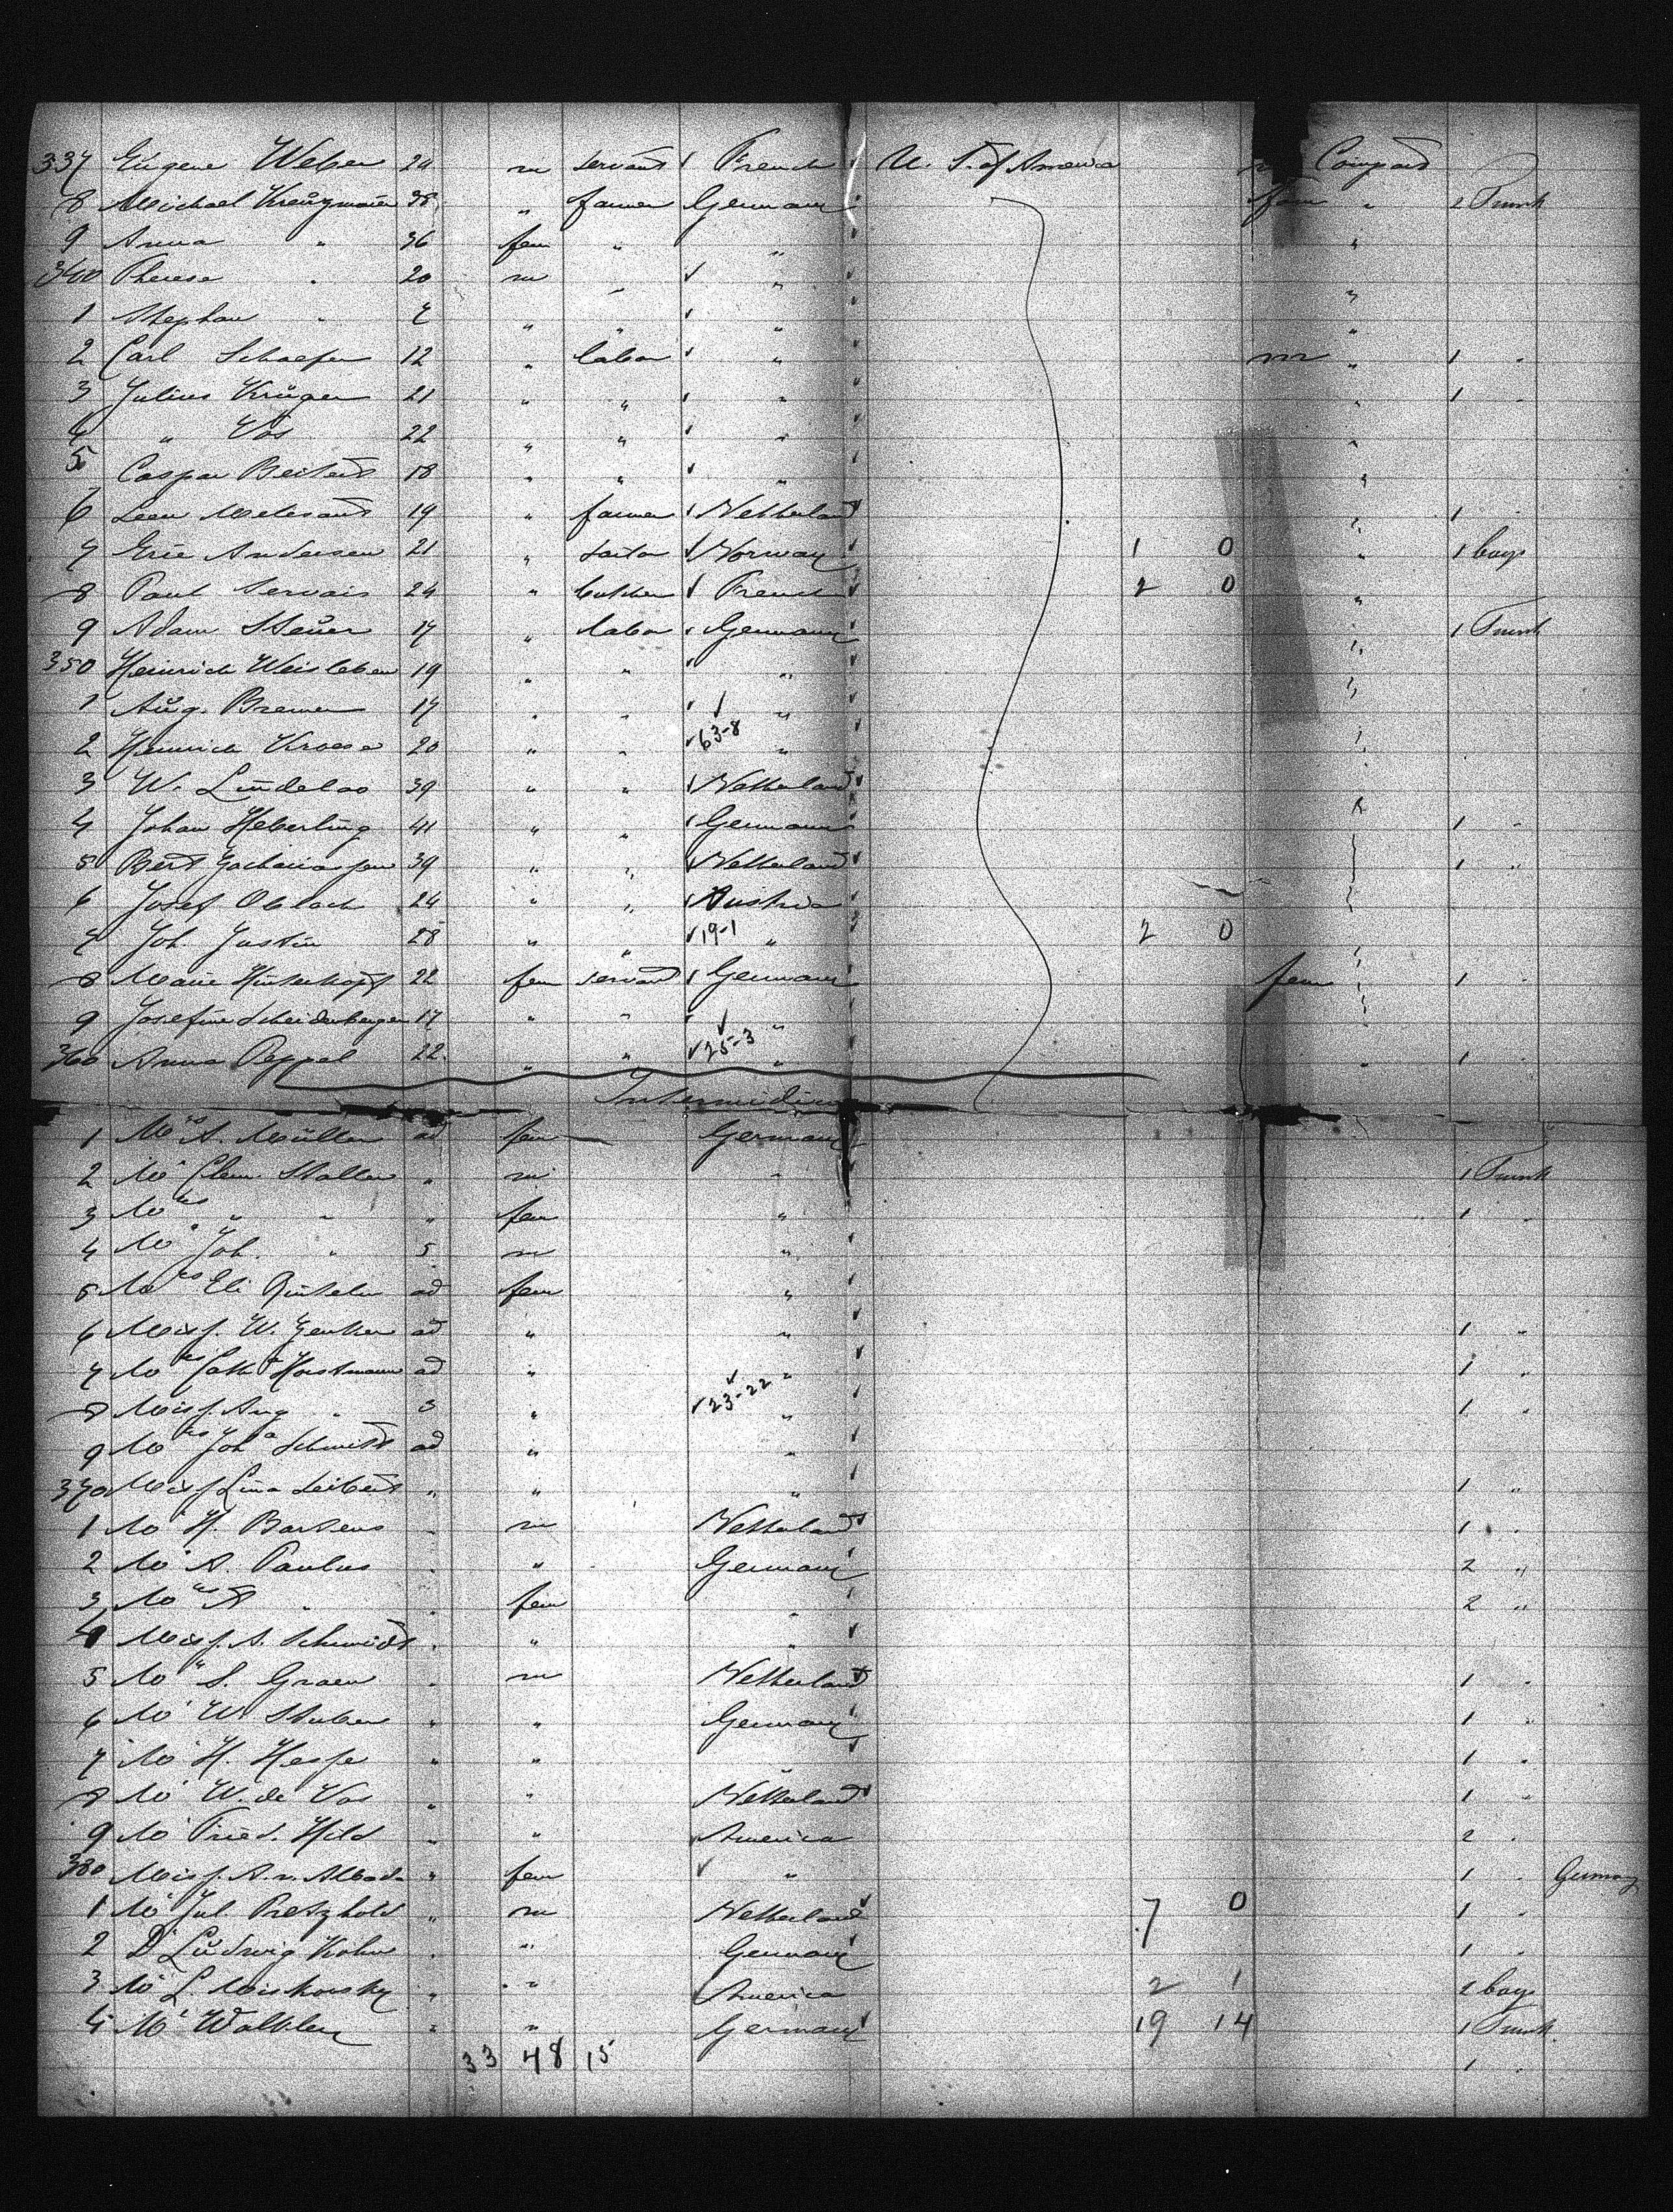 337 Eugene Weber 24 m servant French U. S. of America m Compard
8 Michael Kreuzmaier 38 " farmer Germany fam " 2 Trunk
9 Anna " 36 fem " " "
340 Therese " 20 m " " "
1 Stephan " " " " "
2 Carl Schaefer 12 " labor " m " 1 "
3 Julius Krüger 21 " " " " 1 "
4 " Vos 22 " " " "
5 Caspar 18 " " " "
6 Leen 19 " farmer Netherland " 1 "
7 Eric Andersen 21 " Norway 1 0 " 1 bag
8 Paul Servais 24 " butcher French 2 0 "
9 Adam Steuer 17 " labor Germany " 1 Trunk
350 Heinrich Weisleben 19 " " " "
1 Aug. Bremer 17 " " " "
2 Heinrich Kroese 20 " " 63-8 " "
3 W. Lindeloo 39 " " Netherland "
4 Johan Heberling 41 " " Germany " 1 "
5 Bert 39 " " Netherland " 1 "
6 Josef Oblack 24 " " Austria "
7 Joh. Justin 28 " " 19-1 " 2 0 "
8 Marie Hinterkopf 22 fem servant Germany fem " 1 "
9 Josefine Scheidenberger 17 " " " "
360 Anna Peppel 22 " " 25-3 " " 1 "
1 Mrs A. Müller ad fem Germany
2 Mr Clem. Stallen " m " 1 Trunk
3 Mrs " " " fem " 1 "
4 Mr Joh. " 5 m "
5 Mrs Eli ad fem "
6 Miss W. ad " " 1 "
7 Mrs Cath. Horstmann ad " " 1 "
8 Miss Aug " 3 " 23-22 " 1 "
9 Mrs Joha Schmidt ad " "
370 Miss Lina Seibert " " " 1 "
1 Mr H. Bartens " m Netherland 1 "
2 Mr A. Paulus " " Germany 2 "
3 Mrs A " " fem " 2 "
4 Miss A. Schmidt " " "
5 Mr S. Graen " m Netherland 1 "
6 Mr W Stuben " " Germany 1 "
7 Mr H. Hesse " " " 1 "
8 Mr W. de Vos " " Netherland 1 "
9 Mr Fried. Hild " " America 2 "
380 Miss A. v. " fem " 1 " Germany
1 Mr Jul. Pretzhold " m Netherland 7 0 1 "
2 Dr Ludwig Kohn " " Germany 1 "
3 Mr L. Miskovsky " " America 2 1 2 bags
4 Mr " " Germany 19 14 1 Trunk
33 48 15 1 "